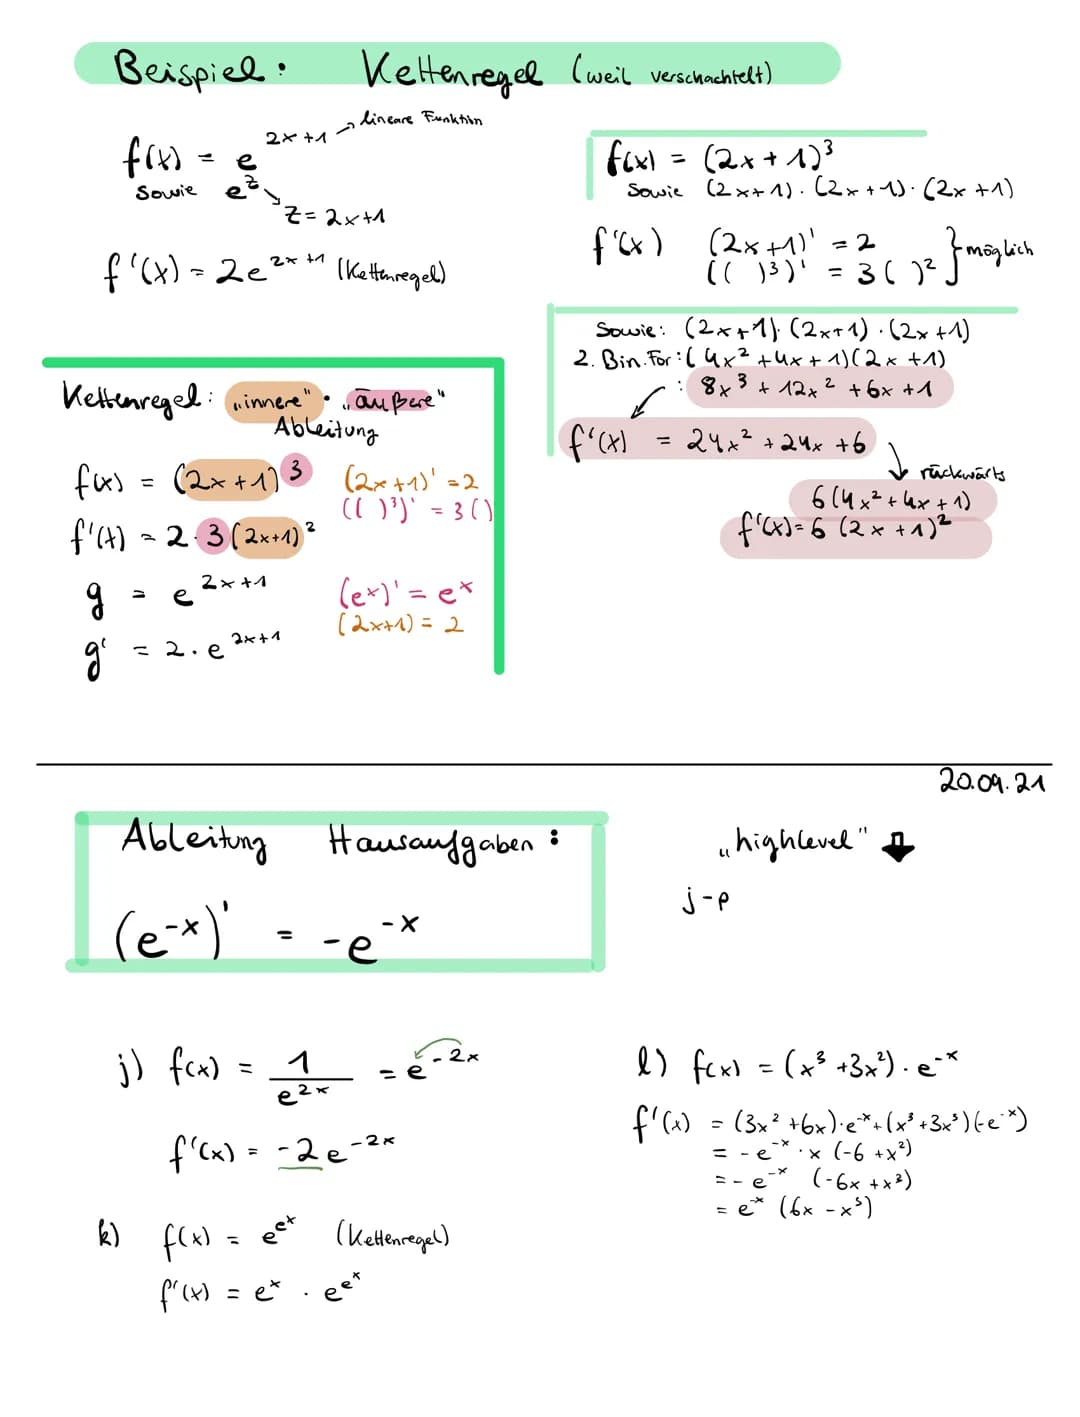 Beispiel: Kettenregel (weil verschachtelt)
f(x) = e^{2x+1} → lineare Funktion
sowie e^z
z = 2x+1
f'(x) = 2e^{2x+1} (Kettenregel)
f(x) = (2x + 1)³
sowie (2x+1) · (2x+1) · (2x+1)
f'(x) (2x+1)' = 2
(( )³)' = 3( )² } möglich
Sowie: (2x+1) · (2x+1) · (2x+1)
2. Bin. For: (4x² + 4x + 1)(2x + 1)
: 8x³ + 12x² + 6x + 1
f'(x) = 24x² + 24x + 6
rückwärts
6(4x² + 4x + 1)
f'(x) = 6 (2x + 1)²
Kettenregel: „innere" · „äußere"
Ableitung
f(x) = (2x + 1)³ (2x+1)' = 2
(( )³)' = 3()
f'(x) = 2·3(2x+1)²
g = e^{2x+1} (e^x)' = e^x
(2x+1) = 2
g' = 2 · e^{2x+1}
20.09.21
Ableitung Hausaufgaben:
(e^{-x})' = -e^{-x}
„highlevel" ⇩
j-p
j) f(x) = 1/e^{2x} = e^{-2x}
f'(x) = -2e^{-2x}
k) f(x) = e^{e^x} (Kettenregel)
f'(x) = e^x · e^{e^x}
l) f(x) = (x³ + 3x²) · e^{-x}
f'(x) = (3x² + 6x) · e^{-x} + (x³ + 3x³)(-e^{-x})
= - e^{-x} · x (-6 + x²)
= - e^{-x} (-6x + x³)
= e^{-x} (6x - x³)